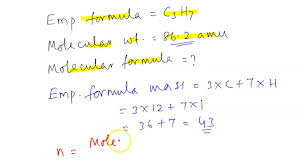 Emp. formula = C3H7
Molecular wt. = 86.2 amu
Molecular formula = ?
Emp. formula mass = 3×C+7×H
= 3×12 + 7×1
= 36+7 = 43
n = Mole.